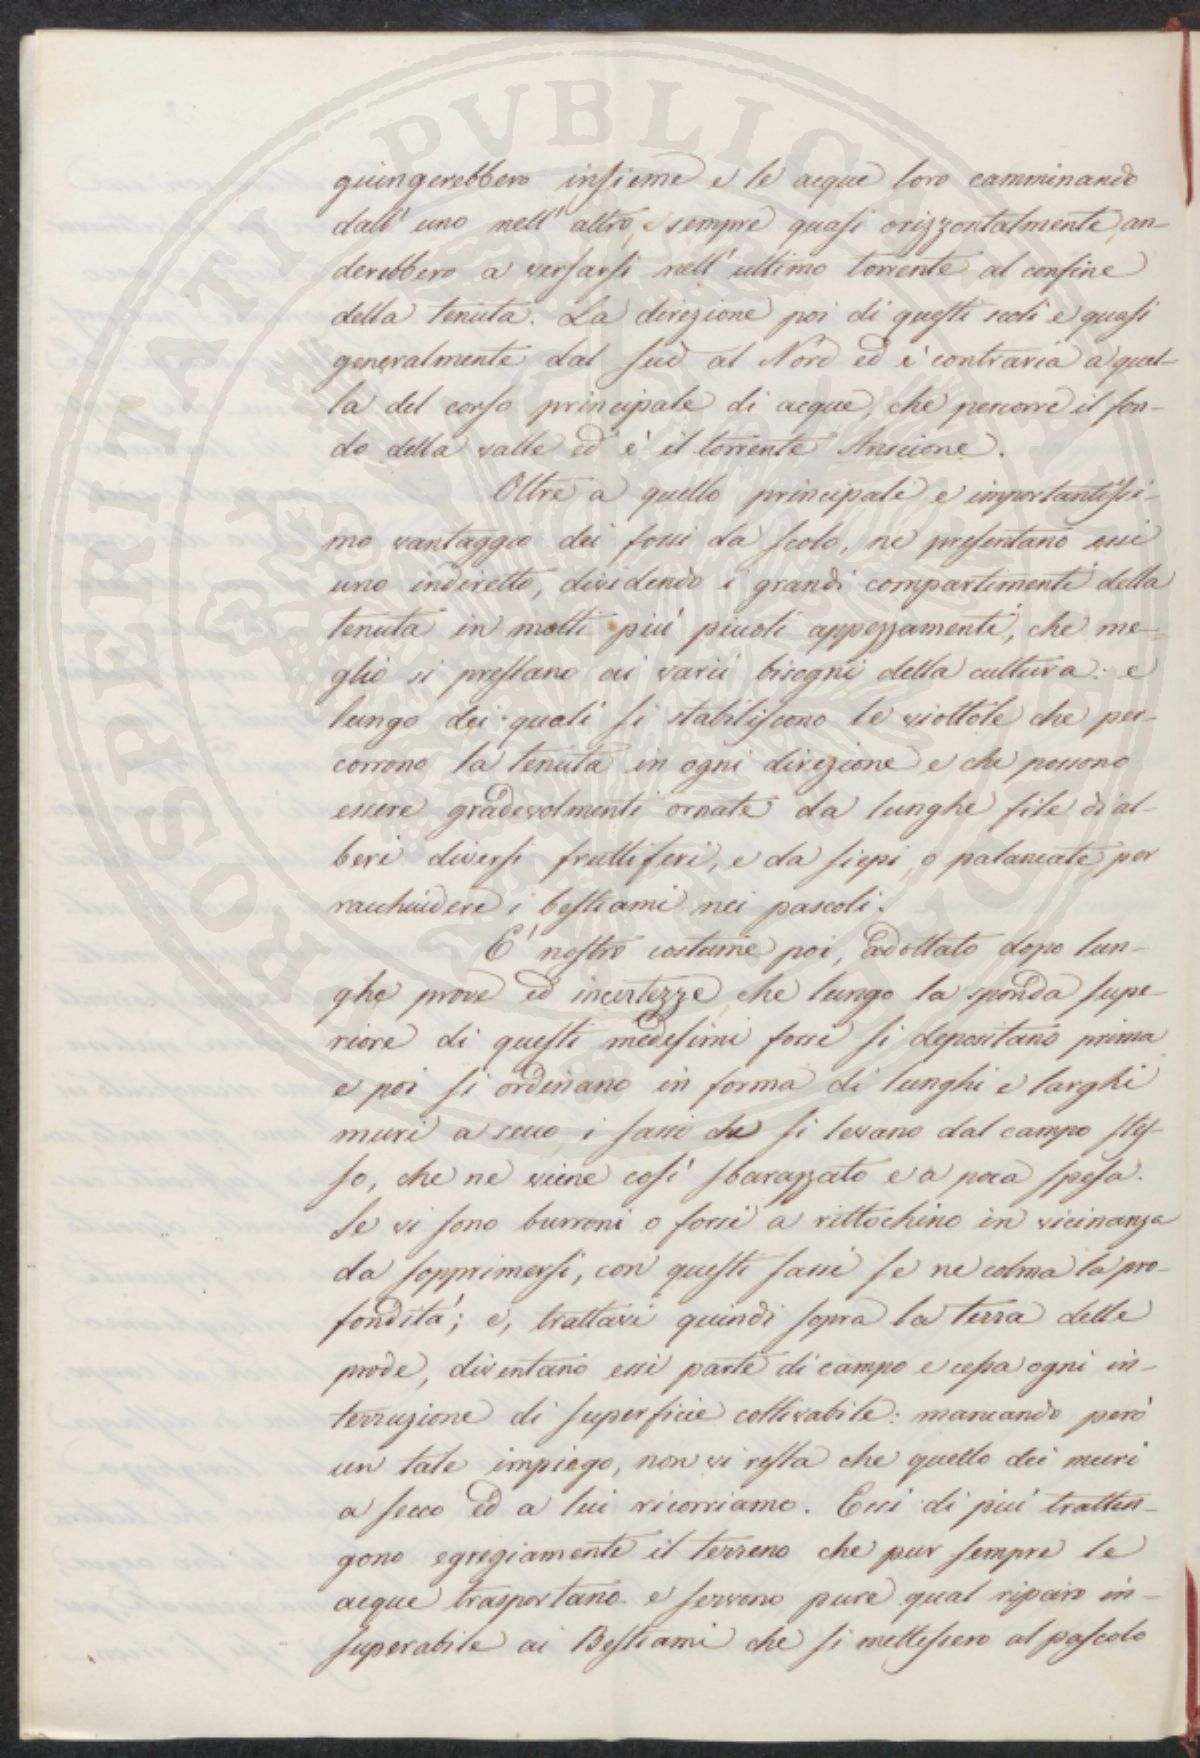 PROSPERITATI PVBLICAE AVGENDAE
guingerebbero insieme e le acque loro camminando
dall'uno nell'altro, sempre quasi orizzontalmente, an-
derebbero a versarsi nell'ultimo torrente al confine
della tenuta. La direzione poi di questi scoli e quasi
generalmente dal Sud al Nord ed è contraria a quel-
la del corso principale di acque, che percorre il fon-
do della valle ed è il torrente Ansione.
Oltre a quello principale e importantissi-
mo vantaggio dei fossi da scolo, ne presentano essi
uno indiretto, dividendo i grandi compartimenti della
tenuta in molti più piccoli appezzamenti, che me-
glio si prestano ai varii bisogni della cultura: e
lungo dei quali si stabiliscono le viottole che per-
corrono la tenuta in ogni direzione e che possono
essere gradevolmenti ornate da lunghe file di al-
beri diversi fruttiferi, e da siepi, o palancate, per
racchiudere i bestiami nei pascoli.
E' nostro costume poi, adottato dopo lun-
ghe prove ed incertezze, che lungo la sponda supe-
riore di questi medesimi fossi si depositano prima
e poi si ordinano in forma di lunghi e larghi
muri a secco i sassi che si levano dal campo stes-
so, che ne viene così sbarazzato e a poca spesa.
Se vi sono burroni o fossi a rittochino in vicinanza
da sopprimersi, con questi sassi se ne colma la pro-
fondità; e, trattavi quindi sopra la terra delle
prode, diventano essi parte di campo e cessa ogni in-
terruzione di superficie coltivabile: mancando però
un tale impiego, non vi resta che quello dei muri
a secco ed a lui ricorriamo. Essi di più tratten-
gono egregiamente il terreno che pur sempre le
acque trasportano e servono pure qual riparo in-
superabile ai Bestiami che si mettessero al pascolo